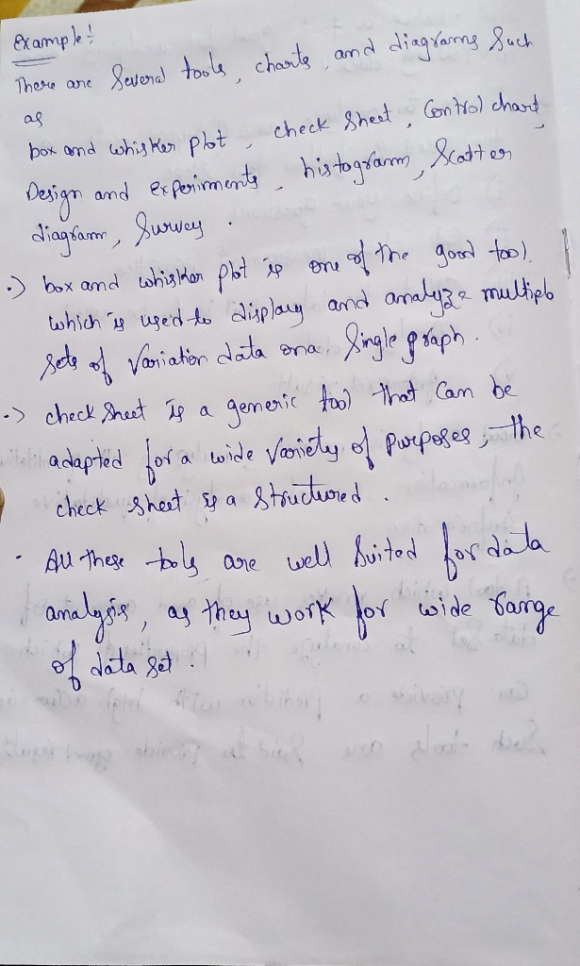 Example:
There are Several tools, charts, and diagrams Such
as
box and whisker plot, check sheet, Control chart,
Design and experiments, histogram, Scatter
diagram, Survey.
box and whisker plot is one of the good tool.
which is used to display and analyze multiple
sets of Variation data on a Single graph.
check sheet is a generic tool that Can be
adapted for a wide Variety of purposes, the
check sheet is a structured.
All these tools are well suited for data
analysis, as they work for wide range
of data set.